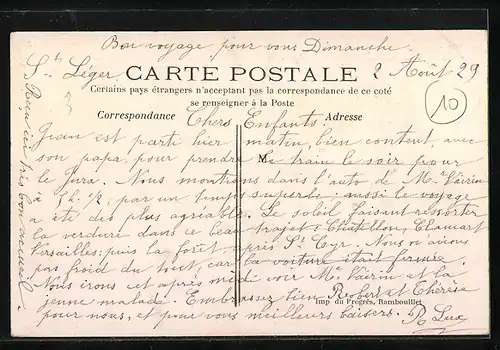 Bon voyage pour vous Dimanche.
St Léger
CARTE POSTALE
2 Août 29
Certains pays étrangers n'acceptant pas la correspondance de ce coté
se renseigner à la Poste
10
Correspondance
Adresse
Chers Enfants.
Jean est parti hier matin, bien content, avec
son papa, pour prendre le train le soir pour
M
le Jura. Nous montions dans l'auto de Me Vairin
à 5h. 1/2, par un temps superbe; aussi le voyage
a été des plus agréable. Le soleil faisant ressortir
la verdure dans ce beau trajet: Châtillon, Clamart
Versailles; puis la forêt après St Cyr. Nous n'avons
pas froid du tout, car la voiture était fermée.
Nous irons cet après midi voir Me Vairin et la
jeune malade. Embrassez bien Robert et Thérèse
Imp du Progrès, Rambouillet
pour nous, et pour vous meilleurs baisers.
Reçu ici très bon accueil.